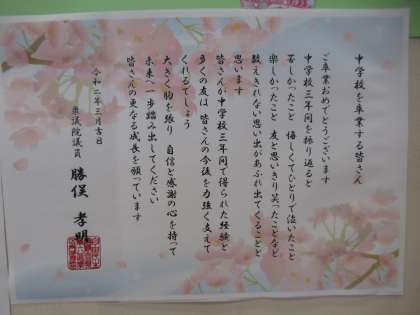 中学校を卒業する皆さん
ご卒業おめでとうございます
中学校三年間を振り返ると
苦しかったこと 悔しくてひとりで泣いたこと
楽しかったこと 友と思いきり笑ったことなど
数えきれない思い出があふれ出てくることと
思います
皆さんが中学校三年間で得られた経験と
多くの友は 皆さんの今後を力強く支えて
くれるでしょう
大きく胸を張り 自信と感謝の心を持って
未来へ一歩踏み出してください
皆さんの更なる成長を願っています
令和二年三月吉日
衆議院議員 勝俣 孝明